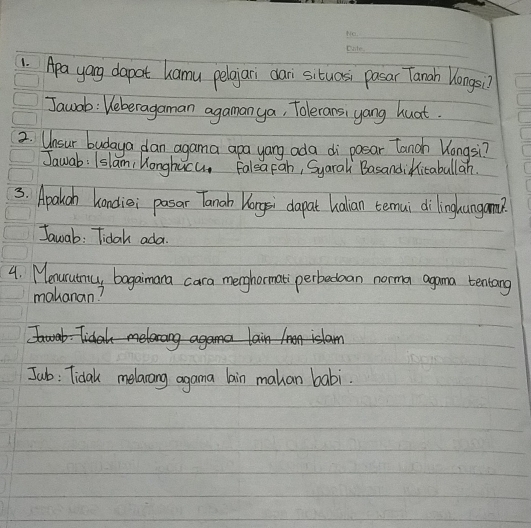 No:
Date:
1. Apa yang dapat kamu pelajari dari situasi pasar Tanah Kongsi?
Jawab: Keberagaman agamanya, Toleransi yang kuat.
2. Unsur budaya dan agama apa yang ada di pasar Tanah Kongsi?
Jawab: Islam, Konghucu. Falsafah, Syarak Basandi Kitabullah.
3. Apakah kondisi pasar Tanah Kongsi dapat kalian temui di lingkunganmu?
Jawab: Tidak ada.
4. Menurutmu, bagaimana cara menghormati perbedaan norma agama tentang
makanan?
Jawab: Tidak melarang agama lain /non islam
Jwb: Tidak melarang agama lain makan babi.